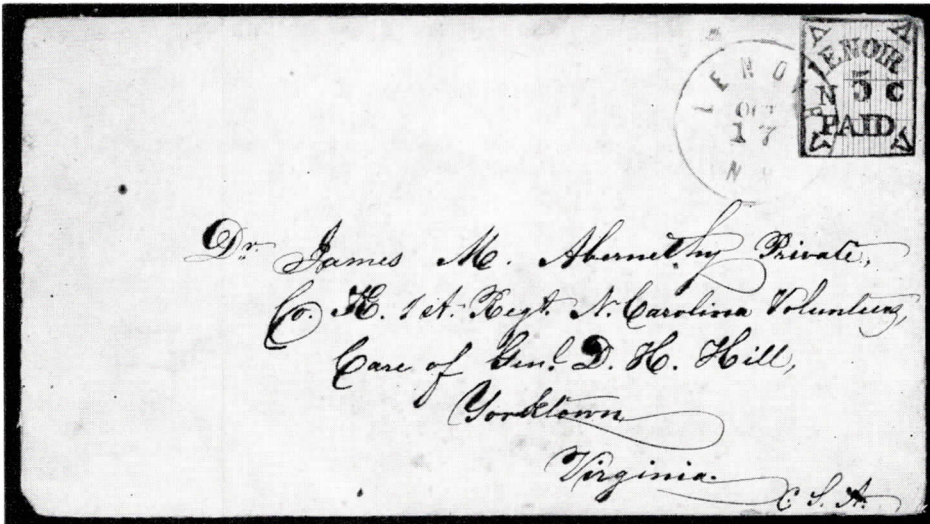 LENOIR
N 5 C
PAID
LENOIR
OCT
17
N
Dr. James M. Abernethy Private,
Co. K. 1st. Regt. N. Carolina Volunteers,
Care of Genl. D. H. Hill,
Yorktown
Virginia.
C. S. A.